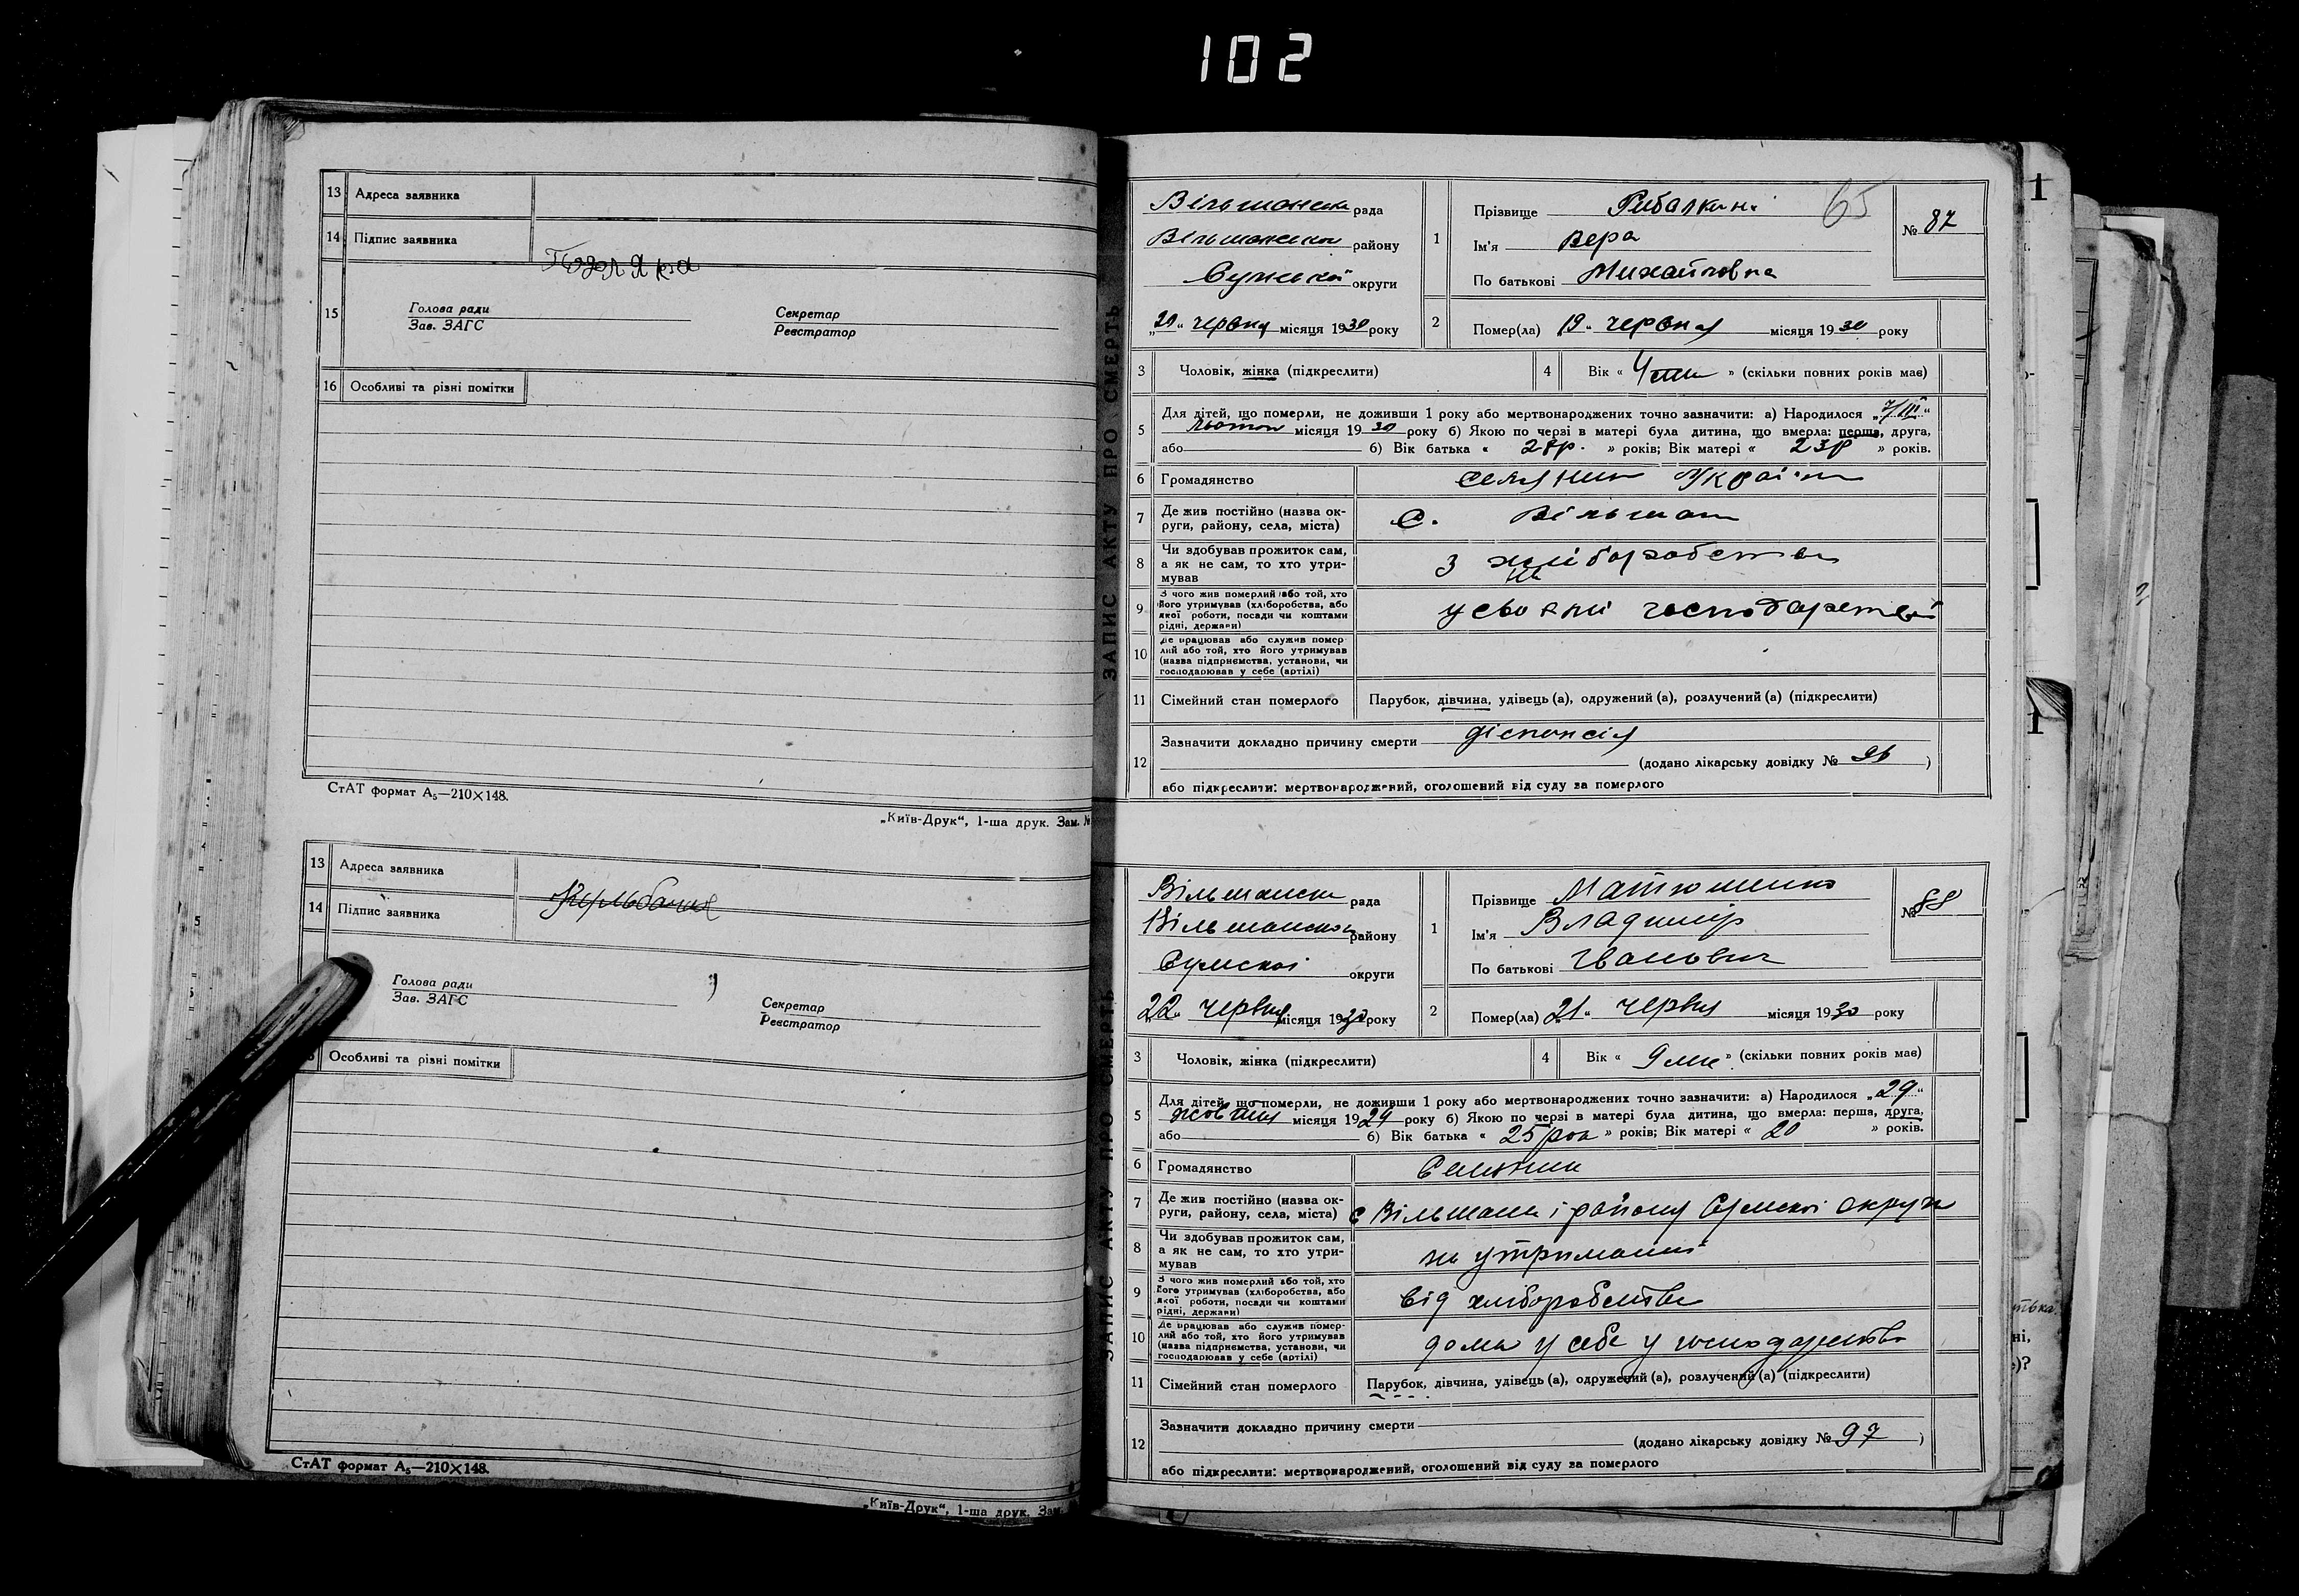 102
13 Адреса заявника
14 Підпис заявника
Подляка
15 Голова ради Секретар
Зав. ЗАГС Реєстратор
16 Особливі та різні помітки
СтАТ формат А5—210×148.
„Київ-Друк“, 1-ша друк. Зам. №
13 Адреса заявника
14 Підпис заявника
Голова ради Секретар
Зав. ЗАГС Реєстратор
Особливі та різні помітки
СтАТ формат А5—210×148.
„Київ-Друк“, 1-ша друк. Зам.
ЗАПИС АКТУ ПРО СМЕРТЬ
65
Вільшанська рада
Вільшанськи району
Сумської округи
„21“ червня місяця 1930 року
1 Прізвище Рибалкина
Ім'я Вера
По батькові Михайловна
№ 87
2 Помер(ла) 19 „ червня місяця 1930 року
3 Чоловік, жінка (підкреслити)
4 Вік « 4 » (скільки повних років має)
5 Для дітей, що померли, не доживши 1 року або мертвонароджених точно зазначити: а) Народилося „7/III“
лютого місяця 1930 року б) Якою по черзі в матері була дитина, що вмерла: перша, друга,
або б) Вік батька « 24р. » років; Вік матері « 23р » років.
6 Громадянство селянин України
7 Де жив постійно (назва округи, району, села, міста) с. Вільшана
8 Чи здобував прожиток сам, а як не сам, то хто утримував з хліборобства
9 З чого жив померлий або той, хто його утримував (хліборобства, або якої роботи, посади чи коштами рідні, держави) у своємі господарстві
10 Де працював або служив померлий або той, хто його утримував (назва підприємства, установи, чи господарював у себе (артілі)
11 Сімейний стан померлого Парубок, дівчина, удівець (а), одружений (а), розлучений (а) (підкреслити)
12 Зазначити докладно причину смерти діспепсія
(додано лікарську довідку № 96 )
або підкреслити: мертвонароджений, оголошений від суду за померлого
ЗАПИС АКТУ ПРО СМЕРТЬ
Вільшанська рада
Вільшанського району
Сумскої округи
„22“ червня місяця 1930 року
1 Прізвище Матюшенко
Ім'я Владимір
По батькові Іванович
№ 88
2 Помер(ла) „21“ червня місяця 1930 року
3 Чоловік, жінка (підкреслити)
4 Вік « 9 міс » (скільки повних років має)
5 Для дітей, що померли, не доживши 1 року або мертвонароджених точно зазначити: а) Народилося „29“
жовтня місяця 1929 року б) Якою по черзі в матері була дитина, що вмерла: перша, друга,
або б) Вік батька « 25 рок » років; Вік матері « 20 » років.
6 Громадянство Селянин
7 Де жив постійно (назва округи, району, села, міста) с Вільшана і району Сумскої округи
8 Чи здобував прожиток сам, а як не сам, то хто утримував на утриманні
9 З чого жив померлий або той, хто його утримував (хліборобства, або якої роботи, посади чи коштами рідні, держави) від хліборобства
10 Де працював або служив померлий або той, хто його утримував (назва підприємства, установи, чи господарював у себе (артілі) дома у себе у господарстві
11 Сімейний стан померлого Парубок, дівчина, удівець (а), одружений (а), розлучений (а) (підкреслити)
12 Зазначити докладно причину смерти
(додано лікарську довідку № 97 )
або підкреслити: мертвонароджений, оголошений від суду за померлого